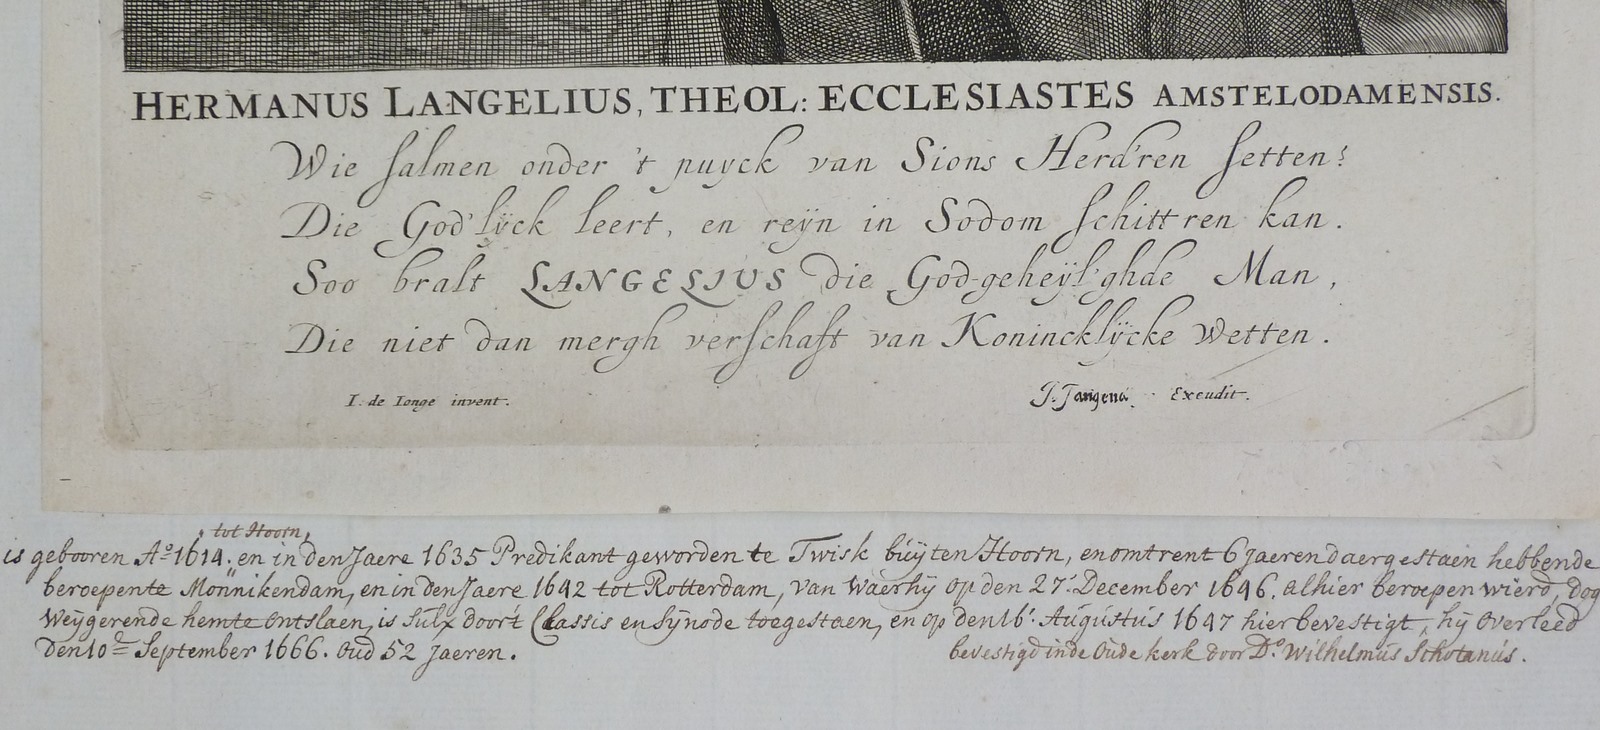 HERMANUS LANGELIUS, THEOL: ECCLESIASTES AMSTELODAMENSIS.
Wie salmen onder 't puyck van Sions Herd'ren setten?
Die God'lÿck leert, en reÿn in Sodom schitt'ren kan.
Soo bralt LANGELIUS die God-geheÿl'ghde Man,
Die niet dan mergh verschaft van Konincklÿcke Wetten.
I. de Ionge invent. J. Tangena. Excudit.
tot Hoorn,
is gebooren Aº 1614. en in den Jaere 1635 Predikant geworden te Twisk buÿten Hoorn, en omtrent 6 jaeren daer gestaen hebbende
beroepen te Monnikendam, en in den Jaere 1642 tot Rotterdam, van Waer hÿ op den 27. December 1646. alhier beroepen wierd, dog
Weÿgerende hem te ontslaen, is sulx door 't Classis en Sÿnode toegestaen, en op den 16. Augústús 1647 hier bevestigt, hÿ overleed
den 10 September 1666. oud 52 jaeren. bevestigd in de Oude kerk door Dº Wilhelmús Schotanús.